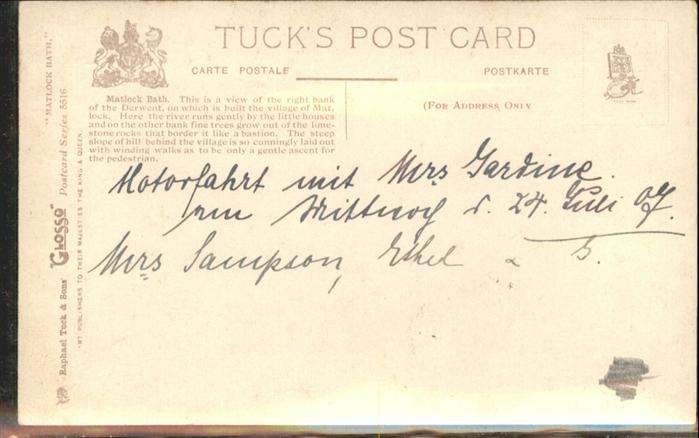 TUCK'S POST CARD
CARTE POSTALE
POSTKARTE
(FOR ADDRESS ONLY
Matlock Bath. This is a view of the right bank
of the Derwent, on which is built the village of Mat-
lock. Here the river runs gently by the little houses
and on the other bank fine trees grow out of the lime-
stone rocks that border it like a bastion. The steep
slope of hill behind the village is so cunningly laid out
with winding walks as to be only a gentle ascent for
the pedestrian.
Motorfahrt mit Mrs Jardine.
am Mittwoch d. 24. Juli 07.
Mrs Sampson, Ethel & S.
Raphael Tuck & Sons' "GLOSSO" Postcard Series 5516 "MATLOCK BATH."
ART PUBLISHERS TO THEIR MAJESTIES THE KING & QUEEN.